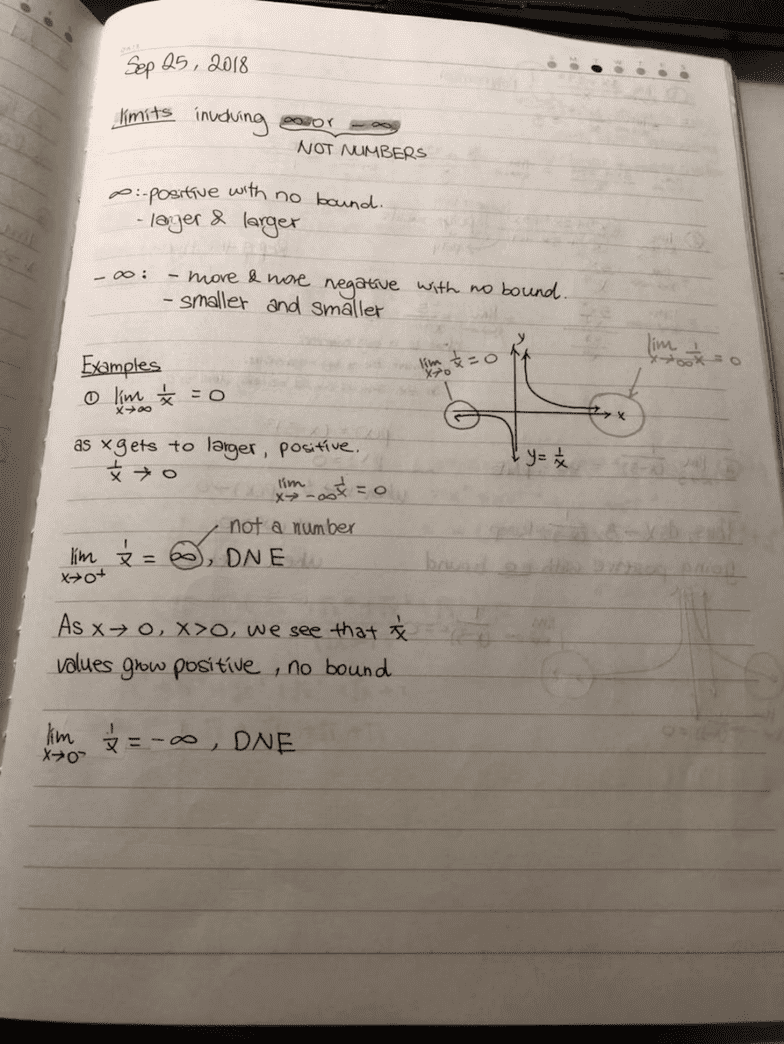 Sep 25, 2018
limits involving ∞ or -∞
NOT NUMBERS
∞:- positive with no bound.
- larger & larger
-∞: - more & more negative with no bound.
- smaller and smaller
Examples
① lim x→∞ 1/x = 0
as x gets to larger, positive.
1/x → 0
lim x→-∞ 1/x = 0
lim x→0 1/x = 0
lim x→∞ 1/x = 0
y
x
y = 1/x
not a number
lim x→0⁺ 1/x = ∞, DNE
As x → 0, x>0, we see that 1/x
values grow positive, no bound
lim x→0⁻ 1/x = -∞, DNE